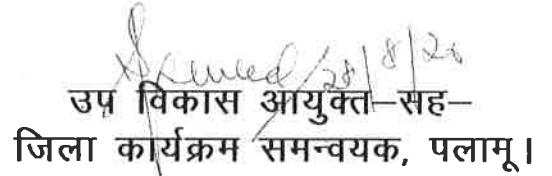 28/8/20
उप विकास आयुक्त–सह–
जिला कार्यक्रम समन्वयक, पलामू।